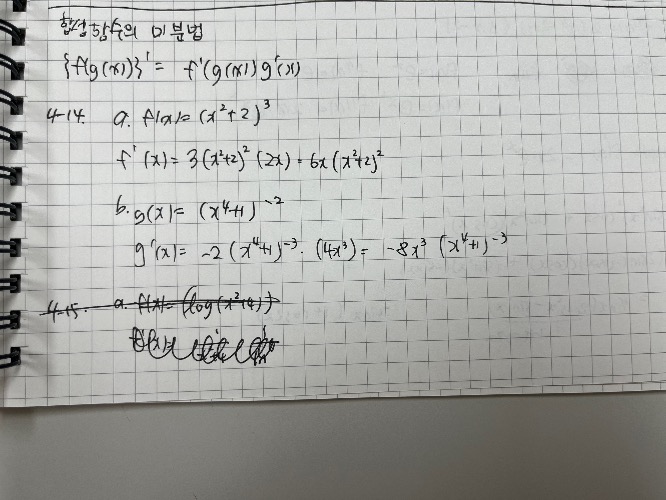 합성함수의 미분법
{f(g(x))}' = f'(g(x)) g'(x)
4-14. a. f(x) = (x²+2)³
f'(x) = 3(x²+2)² (2x) = 6x(x²+2)²
b. g(x) = (x⁴+1)⁻²
g'(x) = -2(x⁴+1)⁻³ · (4x³) = -8x³ (x⁴+1)⁻³
4-15. a. f(x) = (log(x²+4))